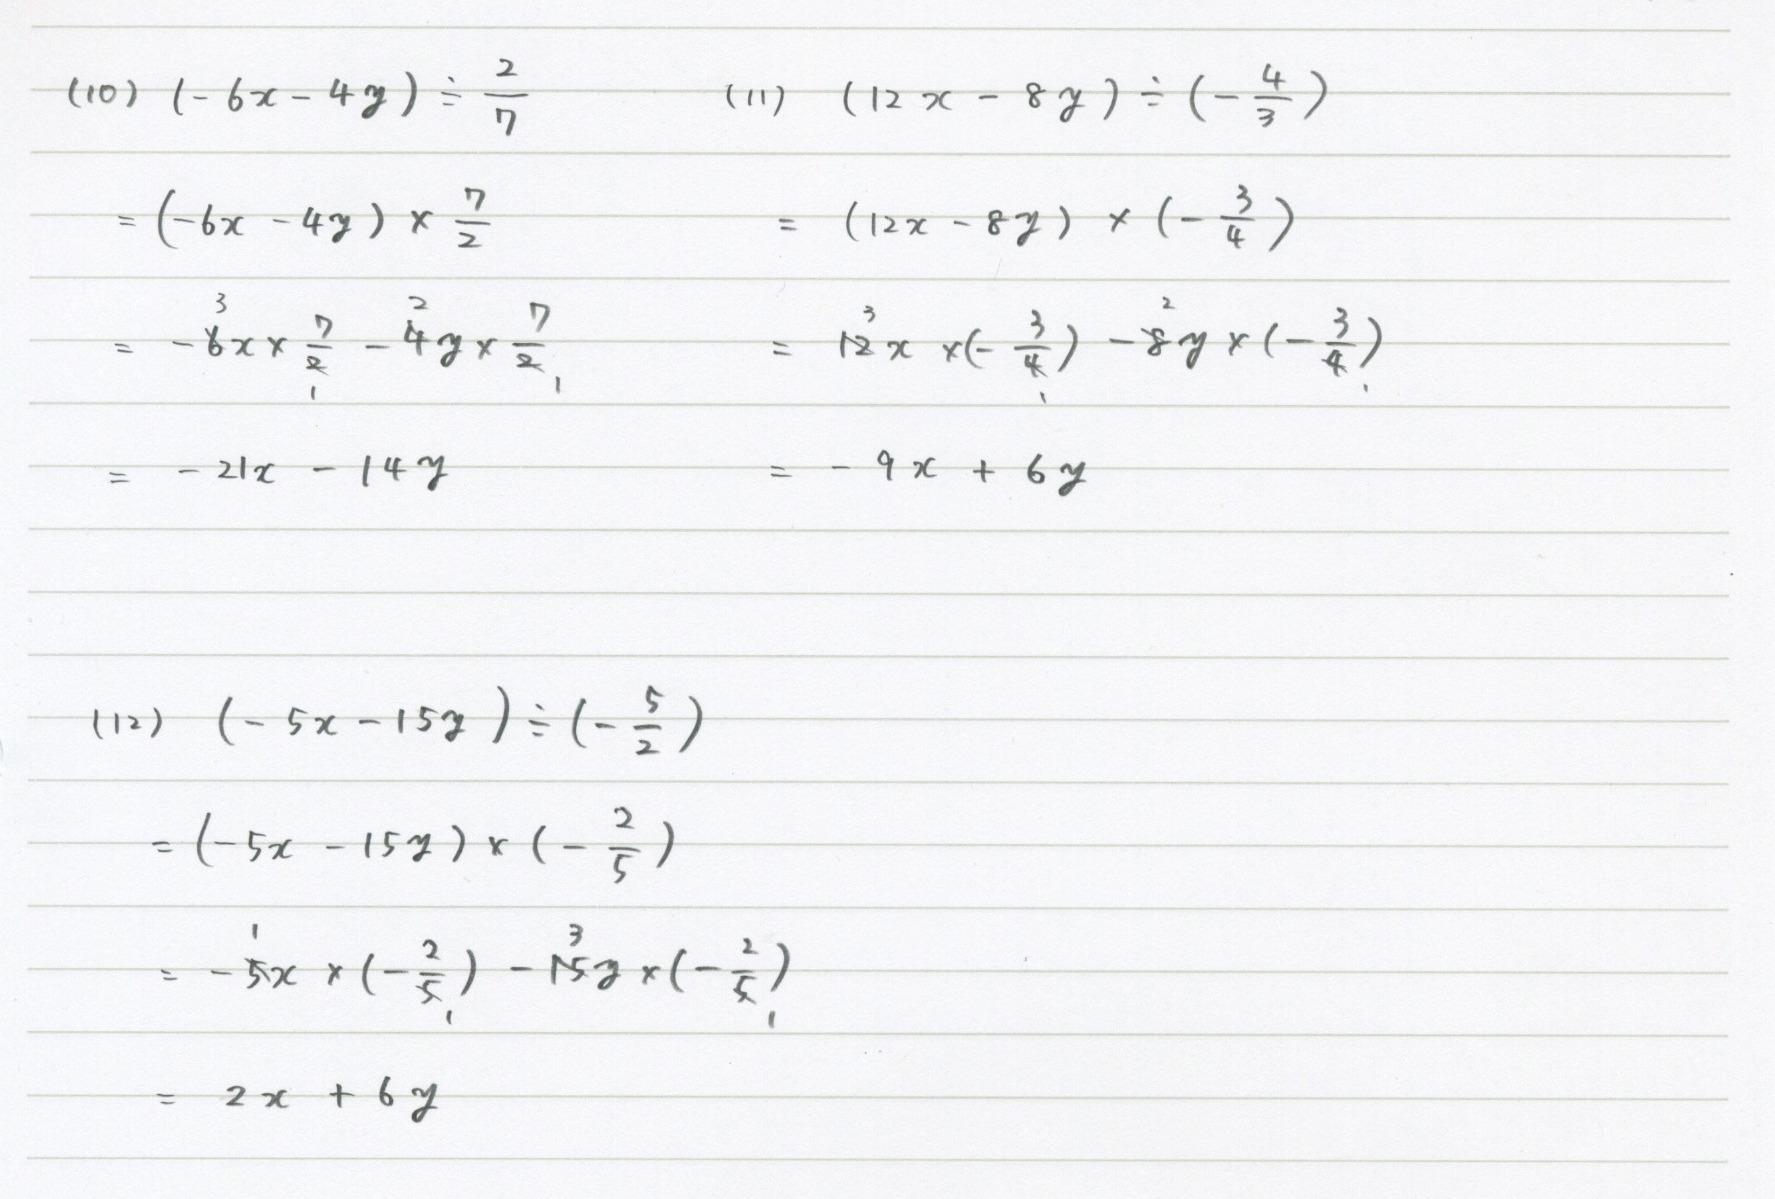 (10) (-6x-4y)÷2/7
=(-6x-4y)×7/2
=-6x×7/2-4y×7/2
=-21x-14y
(11) (12x-8y)÷(-4/3)
=(12x-8y)×(-3/4)
=12x×(-3/4)-8y×(-3/4)
=-9x+6y
(12) (-5x-15y)÷(-5/2)
=(-5x-15y)×(-2/5)
=-5x×(-2/5)-15y×(-2/5)
=2x+6y